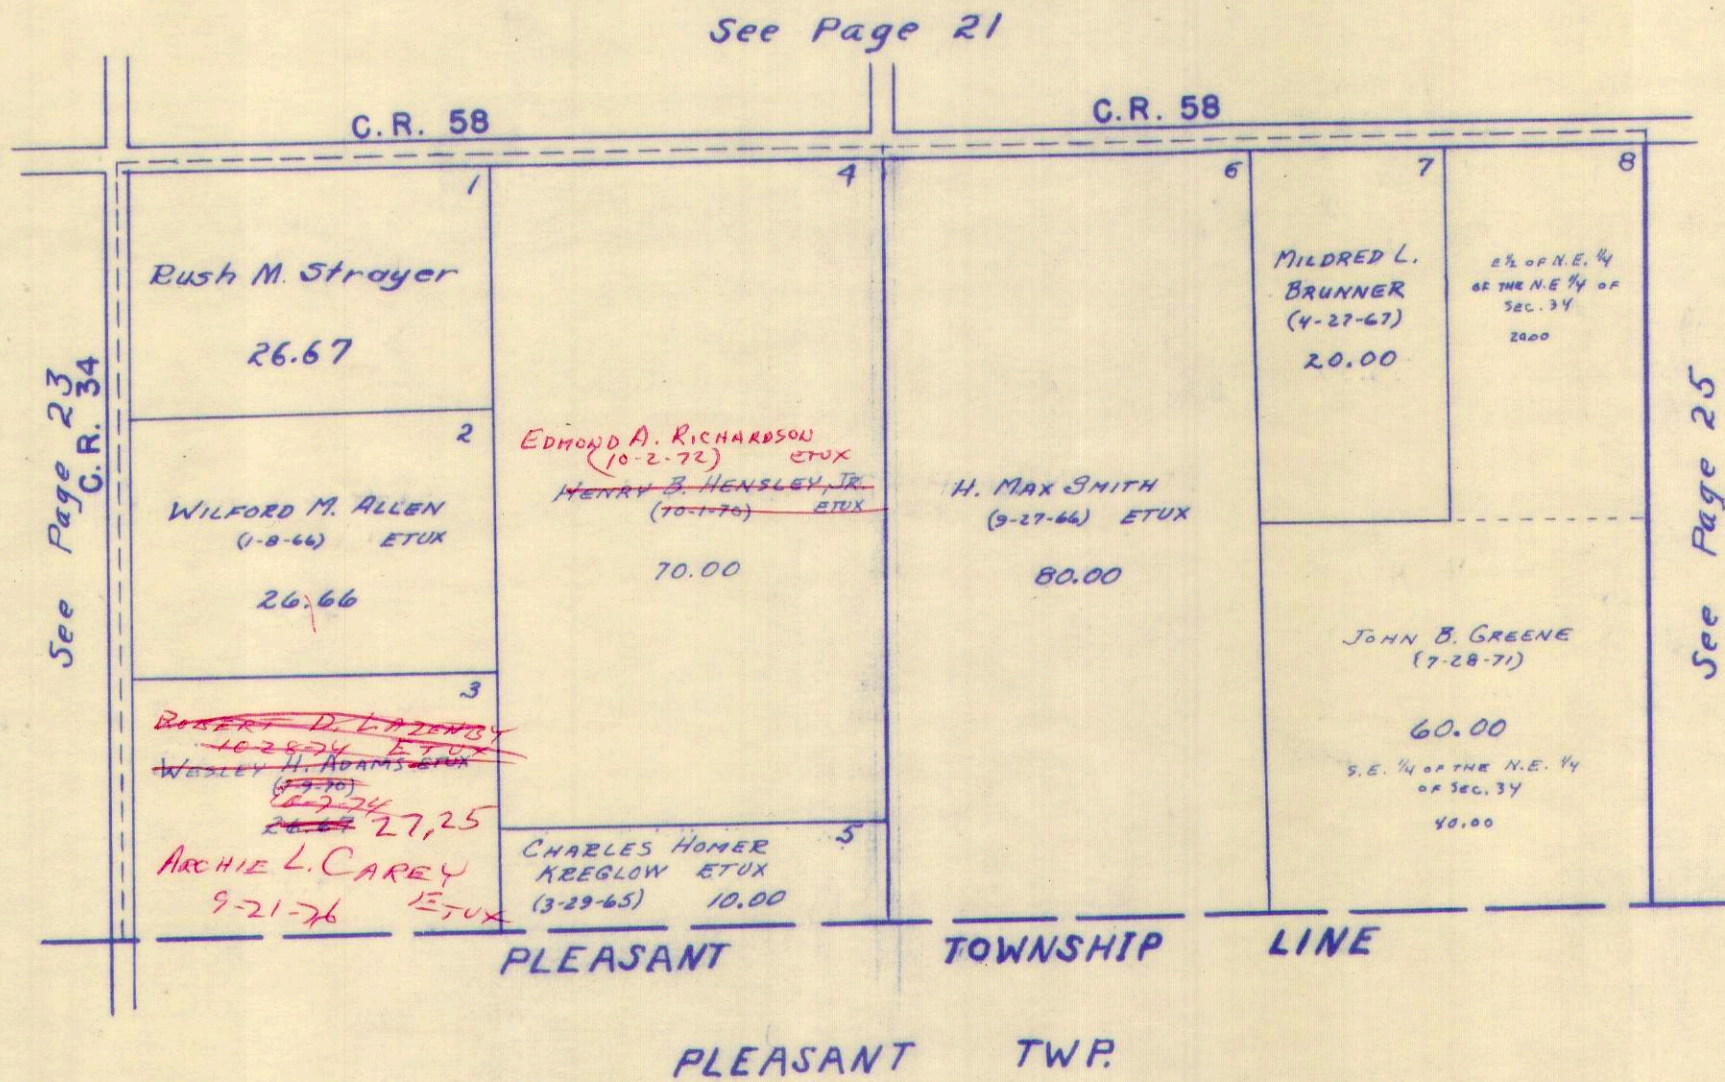 See Page 21
C.R. 58
C.R. 58
See Page 23
C.R. 34
1
Rush M. Strayer
26.67
2
WILFORD M. ALLEN
(1-8-66) ETUX
26.66
3
ROBERT D. LAZENBY
10-28-74 ETUX
WESLEY H. ADAMS ETUX
26.67 27,25
ARCHIE L. CAREY
9-21-76 ETUX
4
EDMOND A. RICHARDSON
(10-2-72) ETUX
HENRY B. HENSLEY, JR.
(10-1-70) ETUX
70.00
5
CHARLES HOMER
KREGLOW ETUX
(3-29-65) 10.00
6
H. MAX SMITH
(9-27-66) ETUX
80.00
7
MILDRED L.
BRUNNER
(4-27-67)
20.00
8
E½ OF N.E. ¼
OF THE N.E ¼ OF
SEC. 34
20.00
JOHN B. GREENE
(7-28-71)
60.00
S.E. ¼ OF THE N.E. ¼
OF SEC. 34
40.00
See Page 25
PLEASANT TOWNSHIP LINE
PLEASANT TWP.